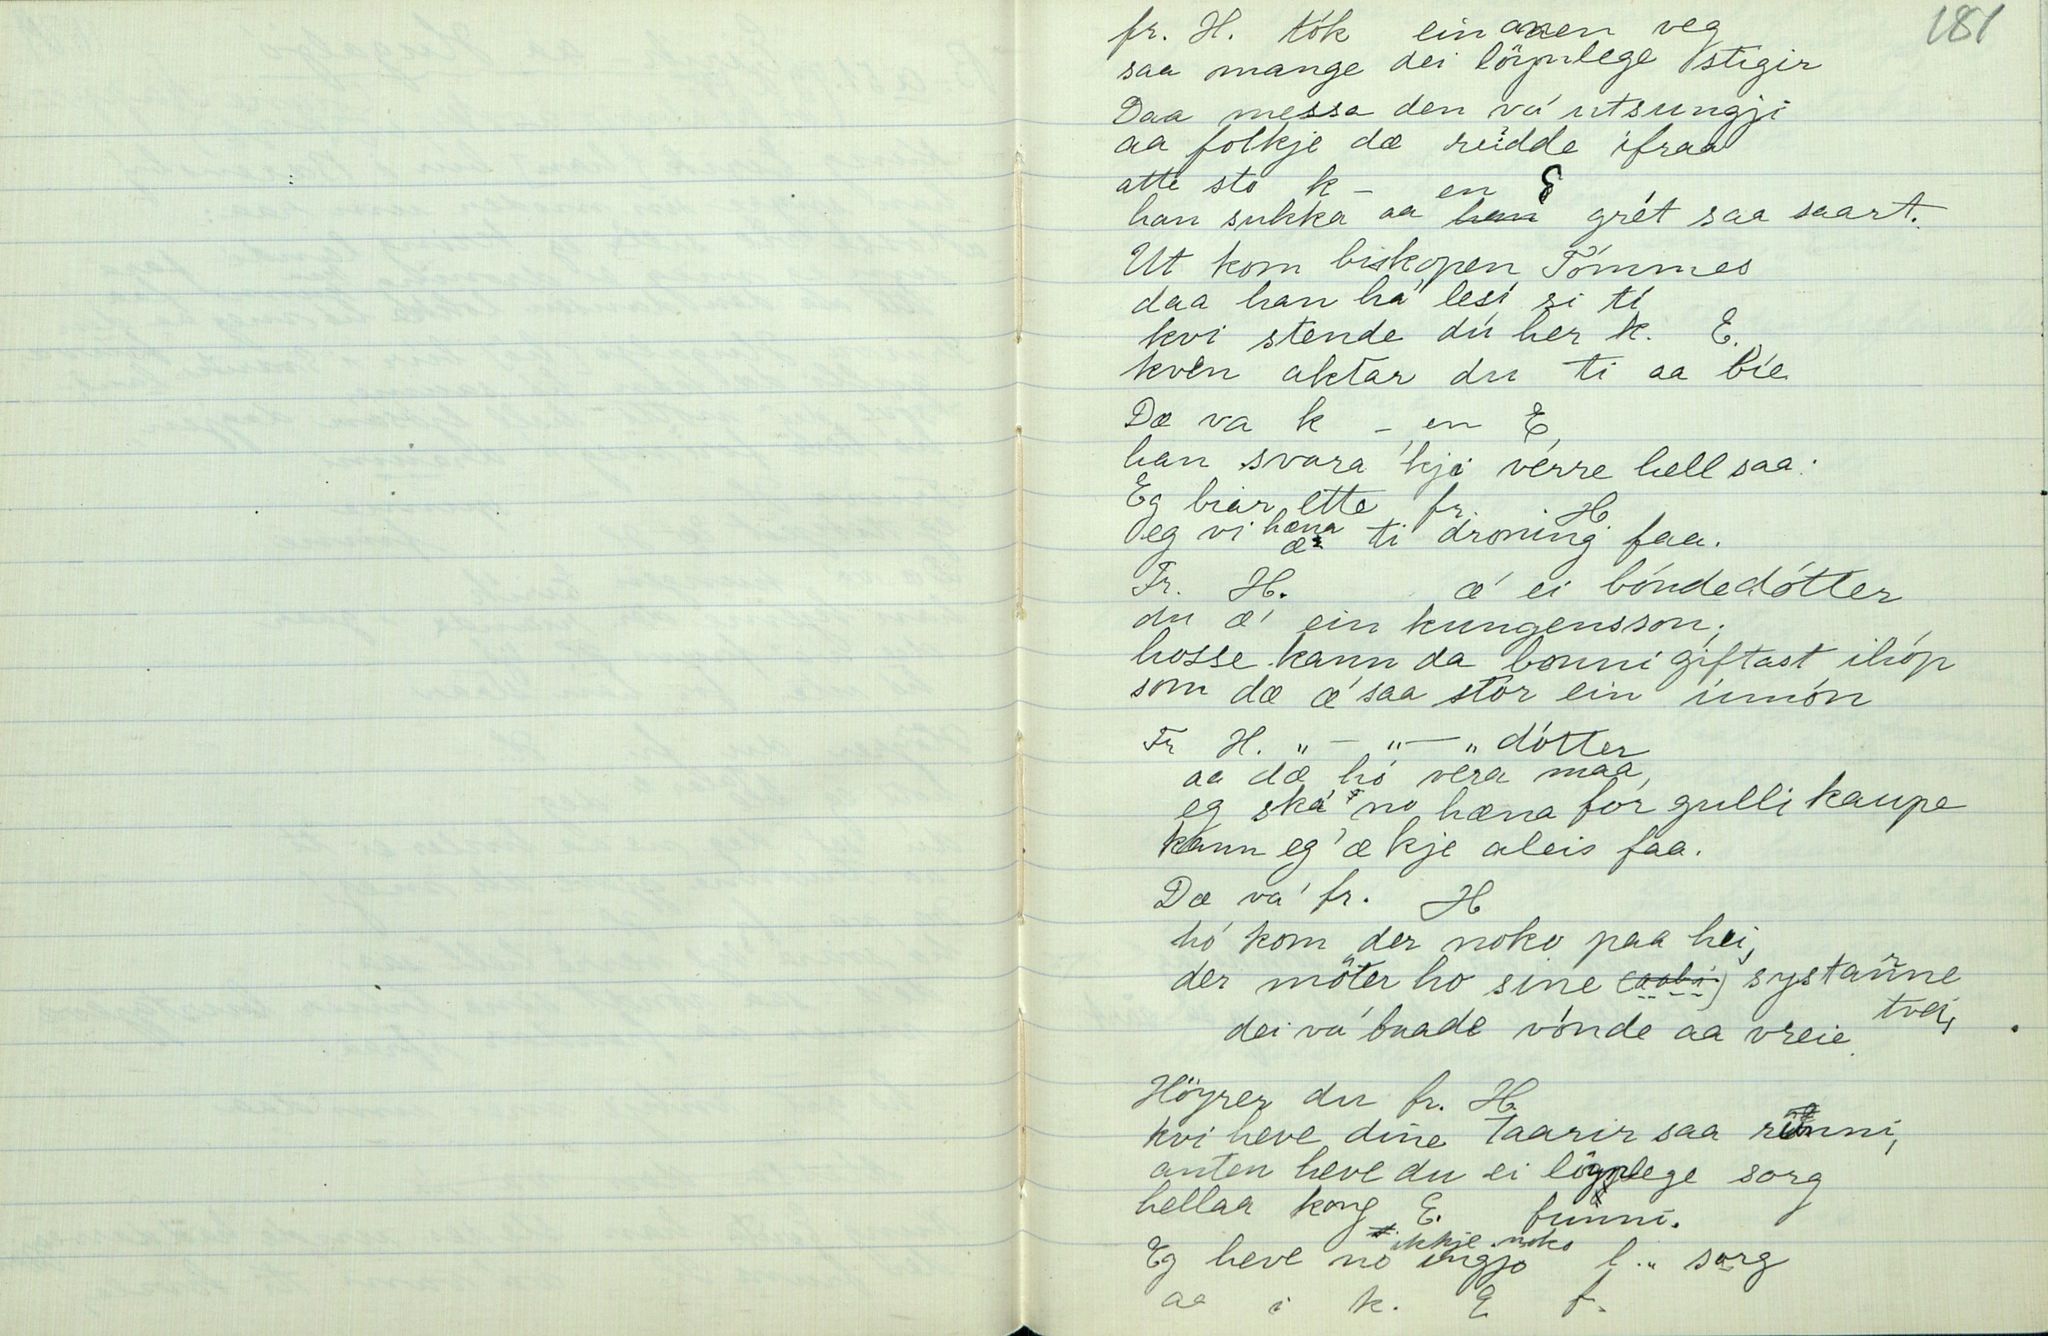 181
fr. H. tók ein aen veg
saa mange dei löynlege stigir
Daa messa den vá utsungji
aa folkje dæ rüdde ifraa
atte sto k – en E
han sukka aa han grét saa saart.
Ut kom biskopen Tómmes
daa han há lesi si tí
kvi stende dú her k. E.
kvén aktar du ti aa bíe
Dæ va k – en E
han svara 'kji vérre hell saa:
Eg biar ette fr. H.
eg vi hæna æ ti droning faa.
Fr. H. æ' ei bóndedótter
du æ' ein kungensson;
hosse kann da bonni giftast ihóp
som dæ æ' saa stór ein úmón
Fr H. „ – „ – „ dótter
aa dæ hó vera maa,
eg ská no hæna for gulli kaupe
kann eg 'æ kje aleis faa.
Dæ vá fr. H
hó kom der noko paa hei,
der möter ho sine systaňne
tvei,
dei vá baade vónde aa vreie.
Höyrer du fr. H.
kvi heve dine taarir saa runni,
anten heve du ei löynlege sorg
hellaa kong E. funni.
Eg heve no ingjo ikkje noko l „ sorg
aa i k. E f.